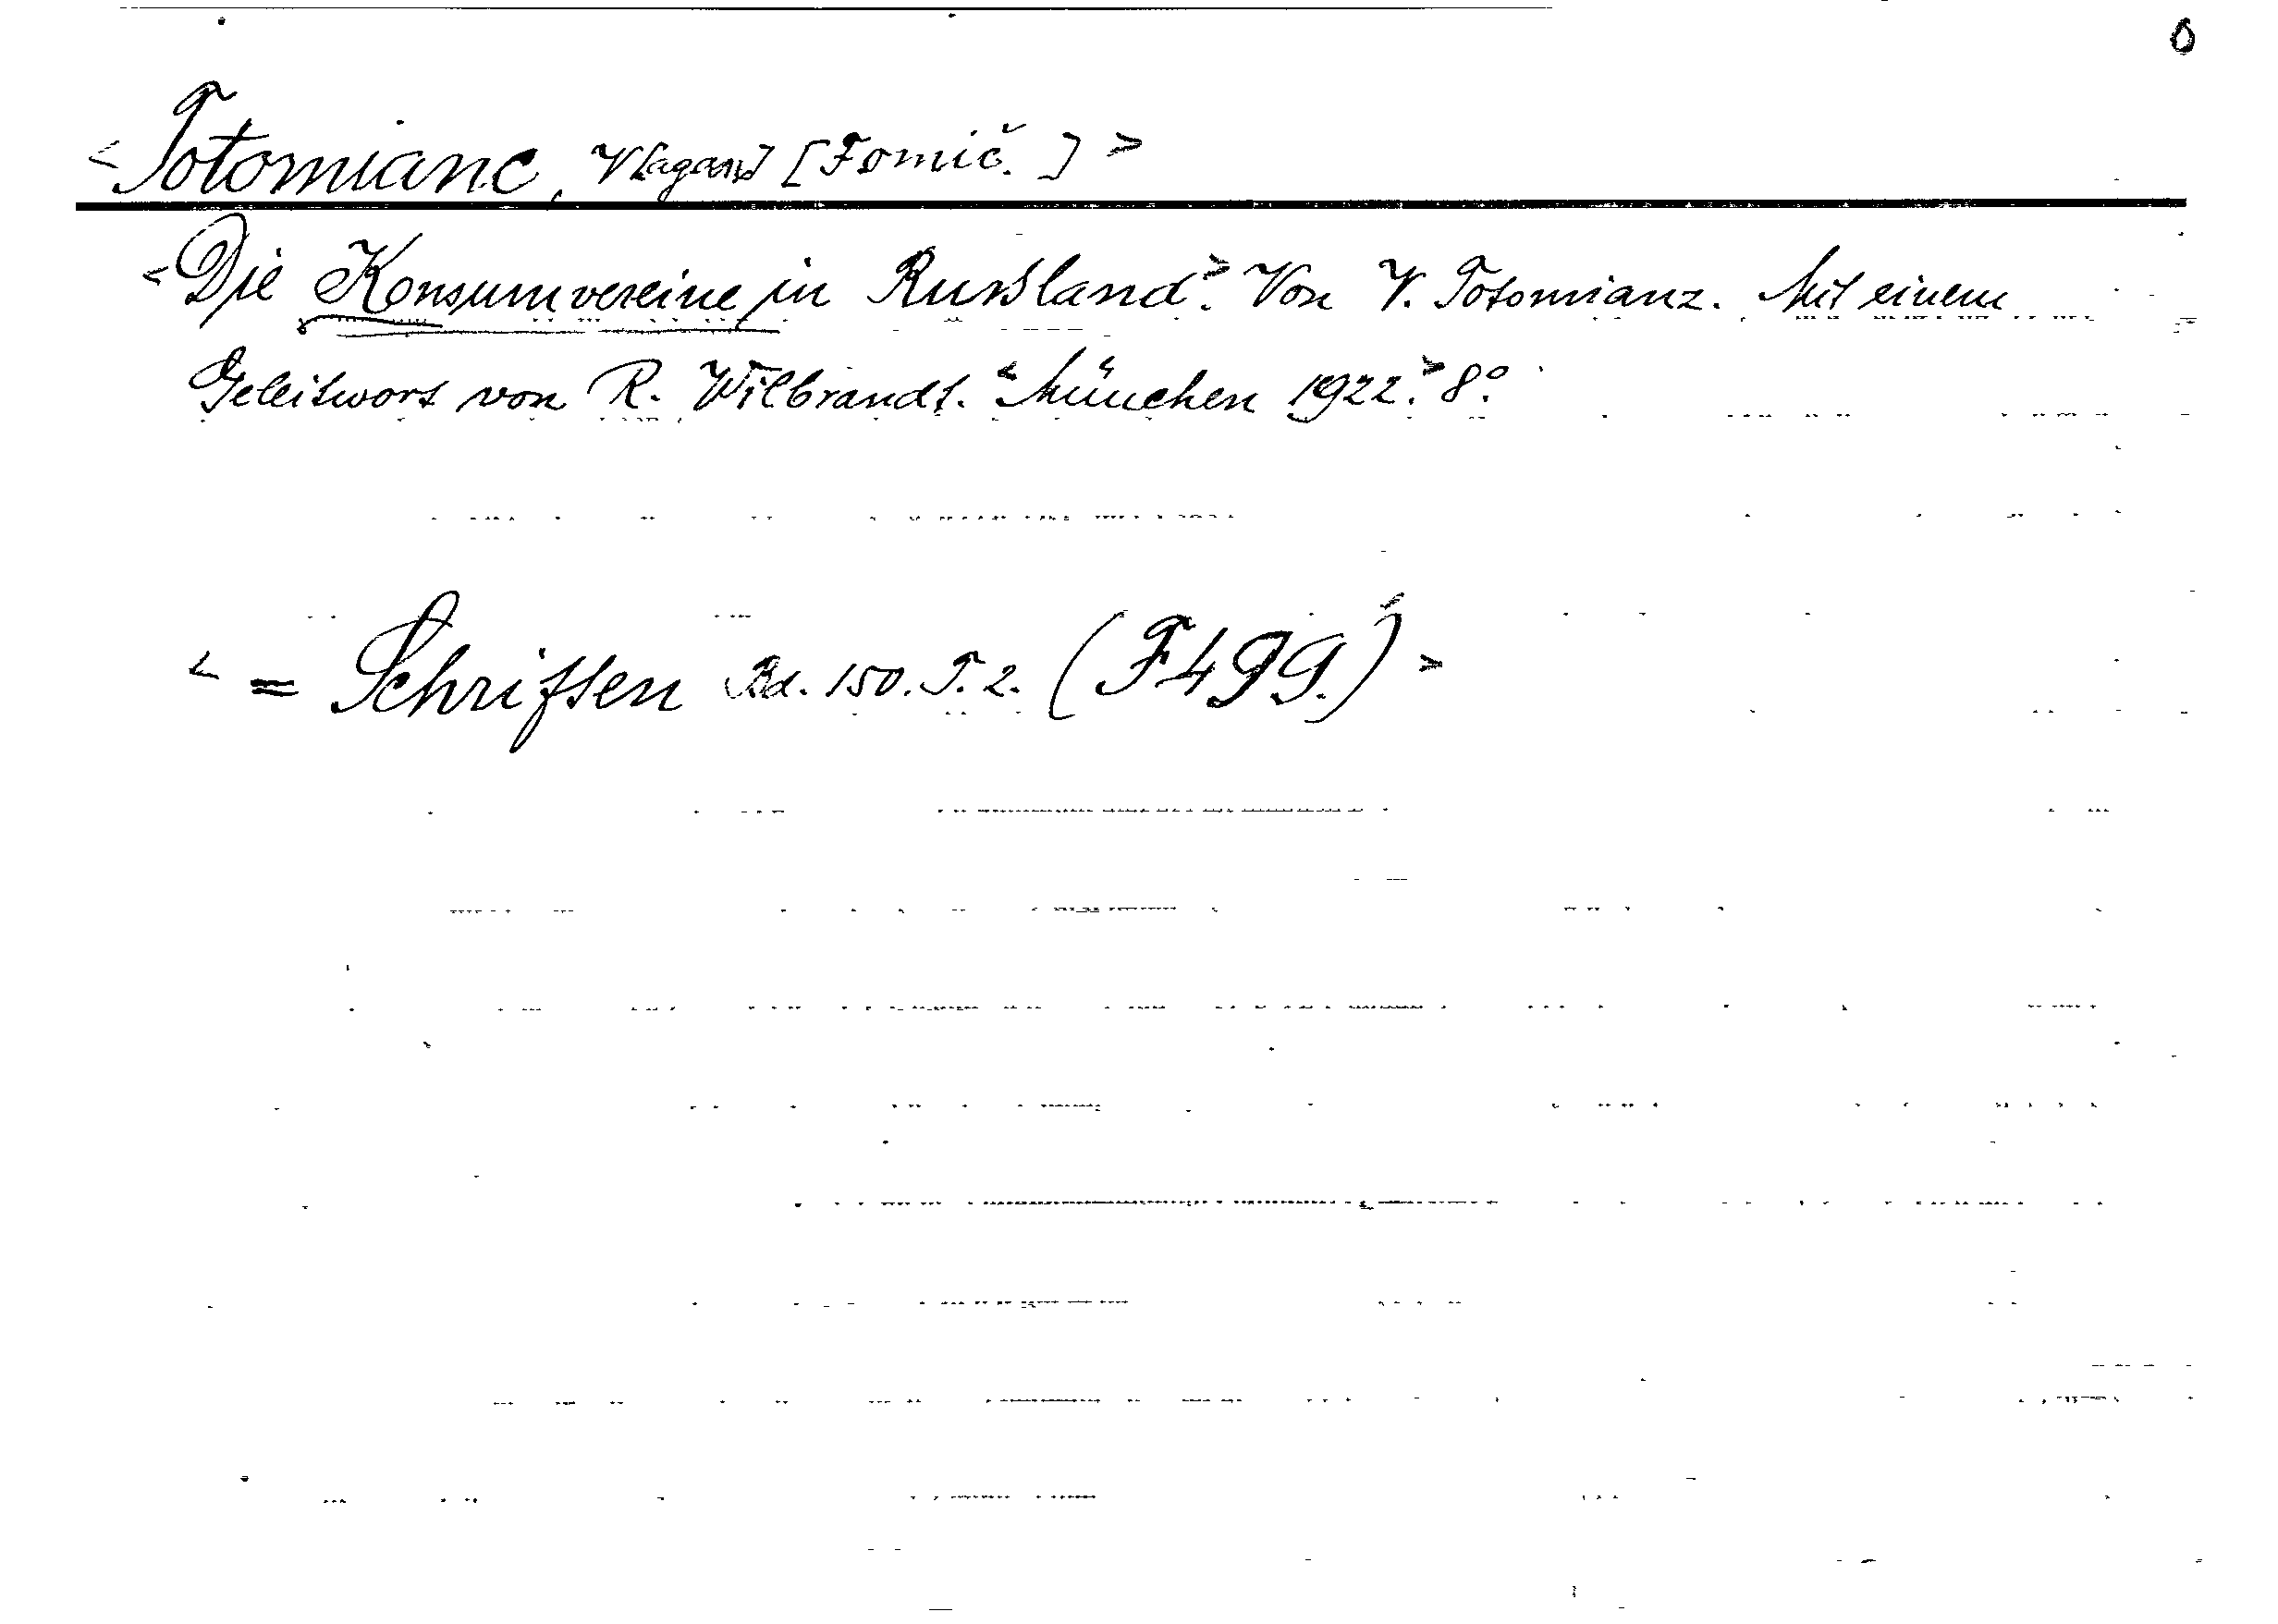 o
<Totomianc, V[agan] [Fomič.]>
<Die Konsumvereine in Russland>. Von V. Totomianz. Mit einem
Geleitwort von R. Wilbrandt. <München 1922.> 8°.
<= Schriften Bd. 150. T. 2. (F499.)>